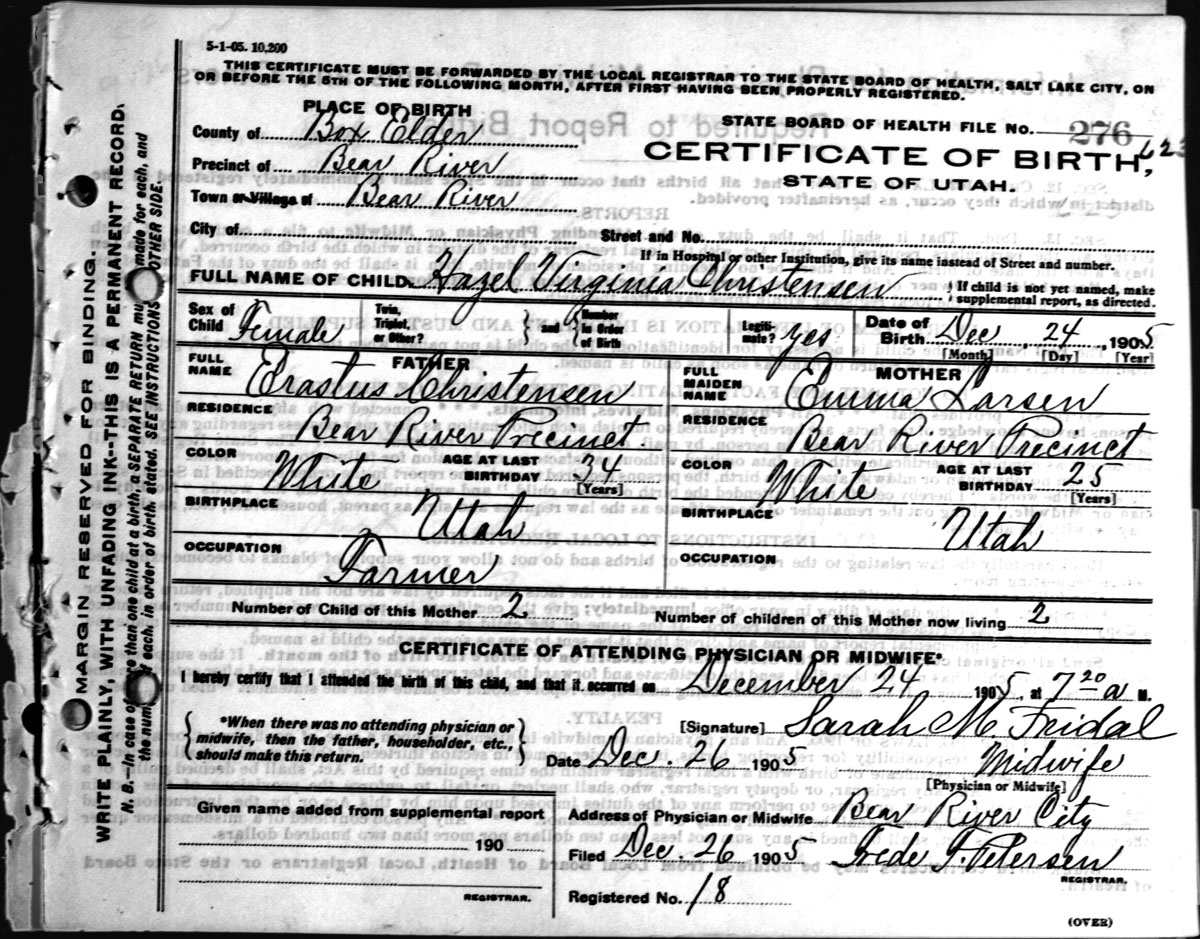 5-1-05. 10,200
THIS CERTIFICATE MUST BE FORWARDED BY THE LOCAL REGISTRAR TO THE STATE BOARD OF HEALTH, SALT LAKE CITY, ON
OR BEFORE THE 5TH OF THE FOLLOWING MONTH, AFTER FIRST HAVING BEEN PROPERLY REGISTERED.
PLACE OF BIRTH
County of Box Elder
Precinct of Bear River
Town or Village of Bear River
City of
STATE BOARD OF HEALTH FILE No. 276
CERTIFICATE OF BIRTH,
STATE OF UTAH.
Street and No.
If in Hospital or other Institution, give its name instead of Street and number.
FULL NAME OF CHILD Hazel Virginia Christensen
If child is not yet named, make
supplemental report, as directed.
Sex of Child Female
Twin, Triplet, or Other?
and
Number in Order of Birth
Legiti-mate? yes
Date of Birth Dec 24, 1905
[Month] [Day] [Year]
FATHER
FULL NAME Erastus Christensen
RESIDENCE Bear River Precinct
COLOR White AGE AT LAST BIRTHDAY 34 [Years]
BIRTHPLACE Utah
OCCUPATION Farmer
MOTHER
FULL MAIDEN NAME Emma Larsen
RESIDENCE Bear River Precinct
COLOR White AGE AT LAST BIRTHDAY 25 [Years]
BIRTHPLACE Utah
OCCUPATION
Number of Child of this Mother 2 Number of children of this Mother now living 2
CERTIFICATE OF ATTENDING PHYSICIAN OR MIDWIFE*
I hereby certify that I attended the birth of this child, and that it occurred on December 24 1905, at 7 20 a M.
*When there was no attending physician or
midwife, then the father, householder, etc.,
should make this return.
[Signature] Sarah M. Fridal
Date Dec. 26 1905 Midwife
[Physician or Midwife]
Given name added from supplemental report
190
REGISTRAR.
Address of Physician or Midwife Bear River City
Filed Dec. 26 1905
Petersen
REGISTRAR.
Registered No. 18
(OVER)
MARGIN RESERVED FOR BINDING.
WRITE PLAINLY, WITH UNFADING INK--THIS IS A PERMANENT RECORD.
N. B.--In case of more than one child at a birth, a SEPARATE RETURN must be made for each, and
the number of each, in order of birth, stated. SEE INSTRUCTIONS ON OTHER SIDE.